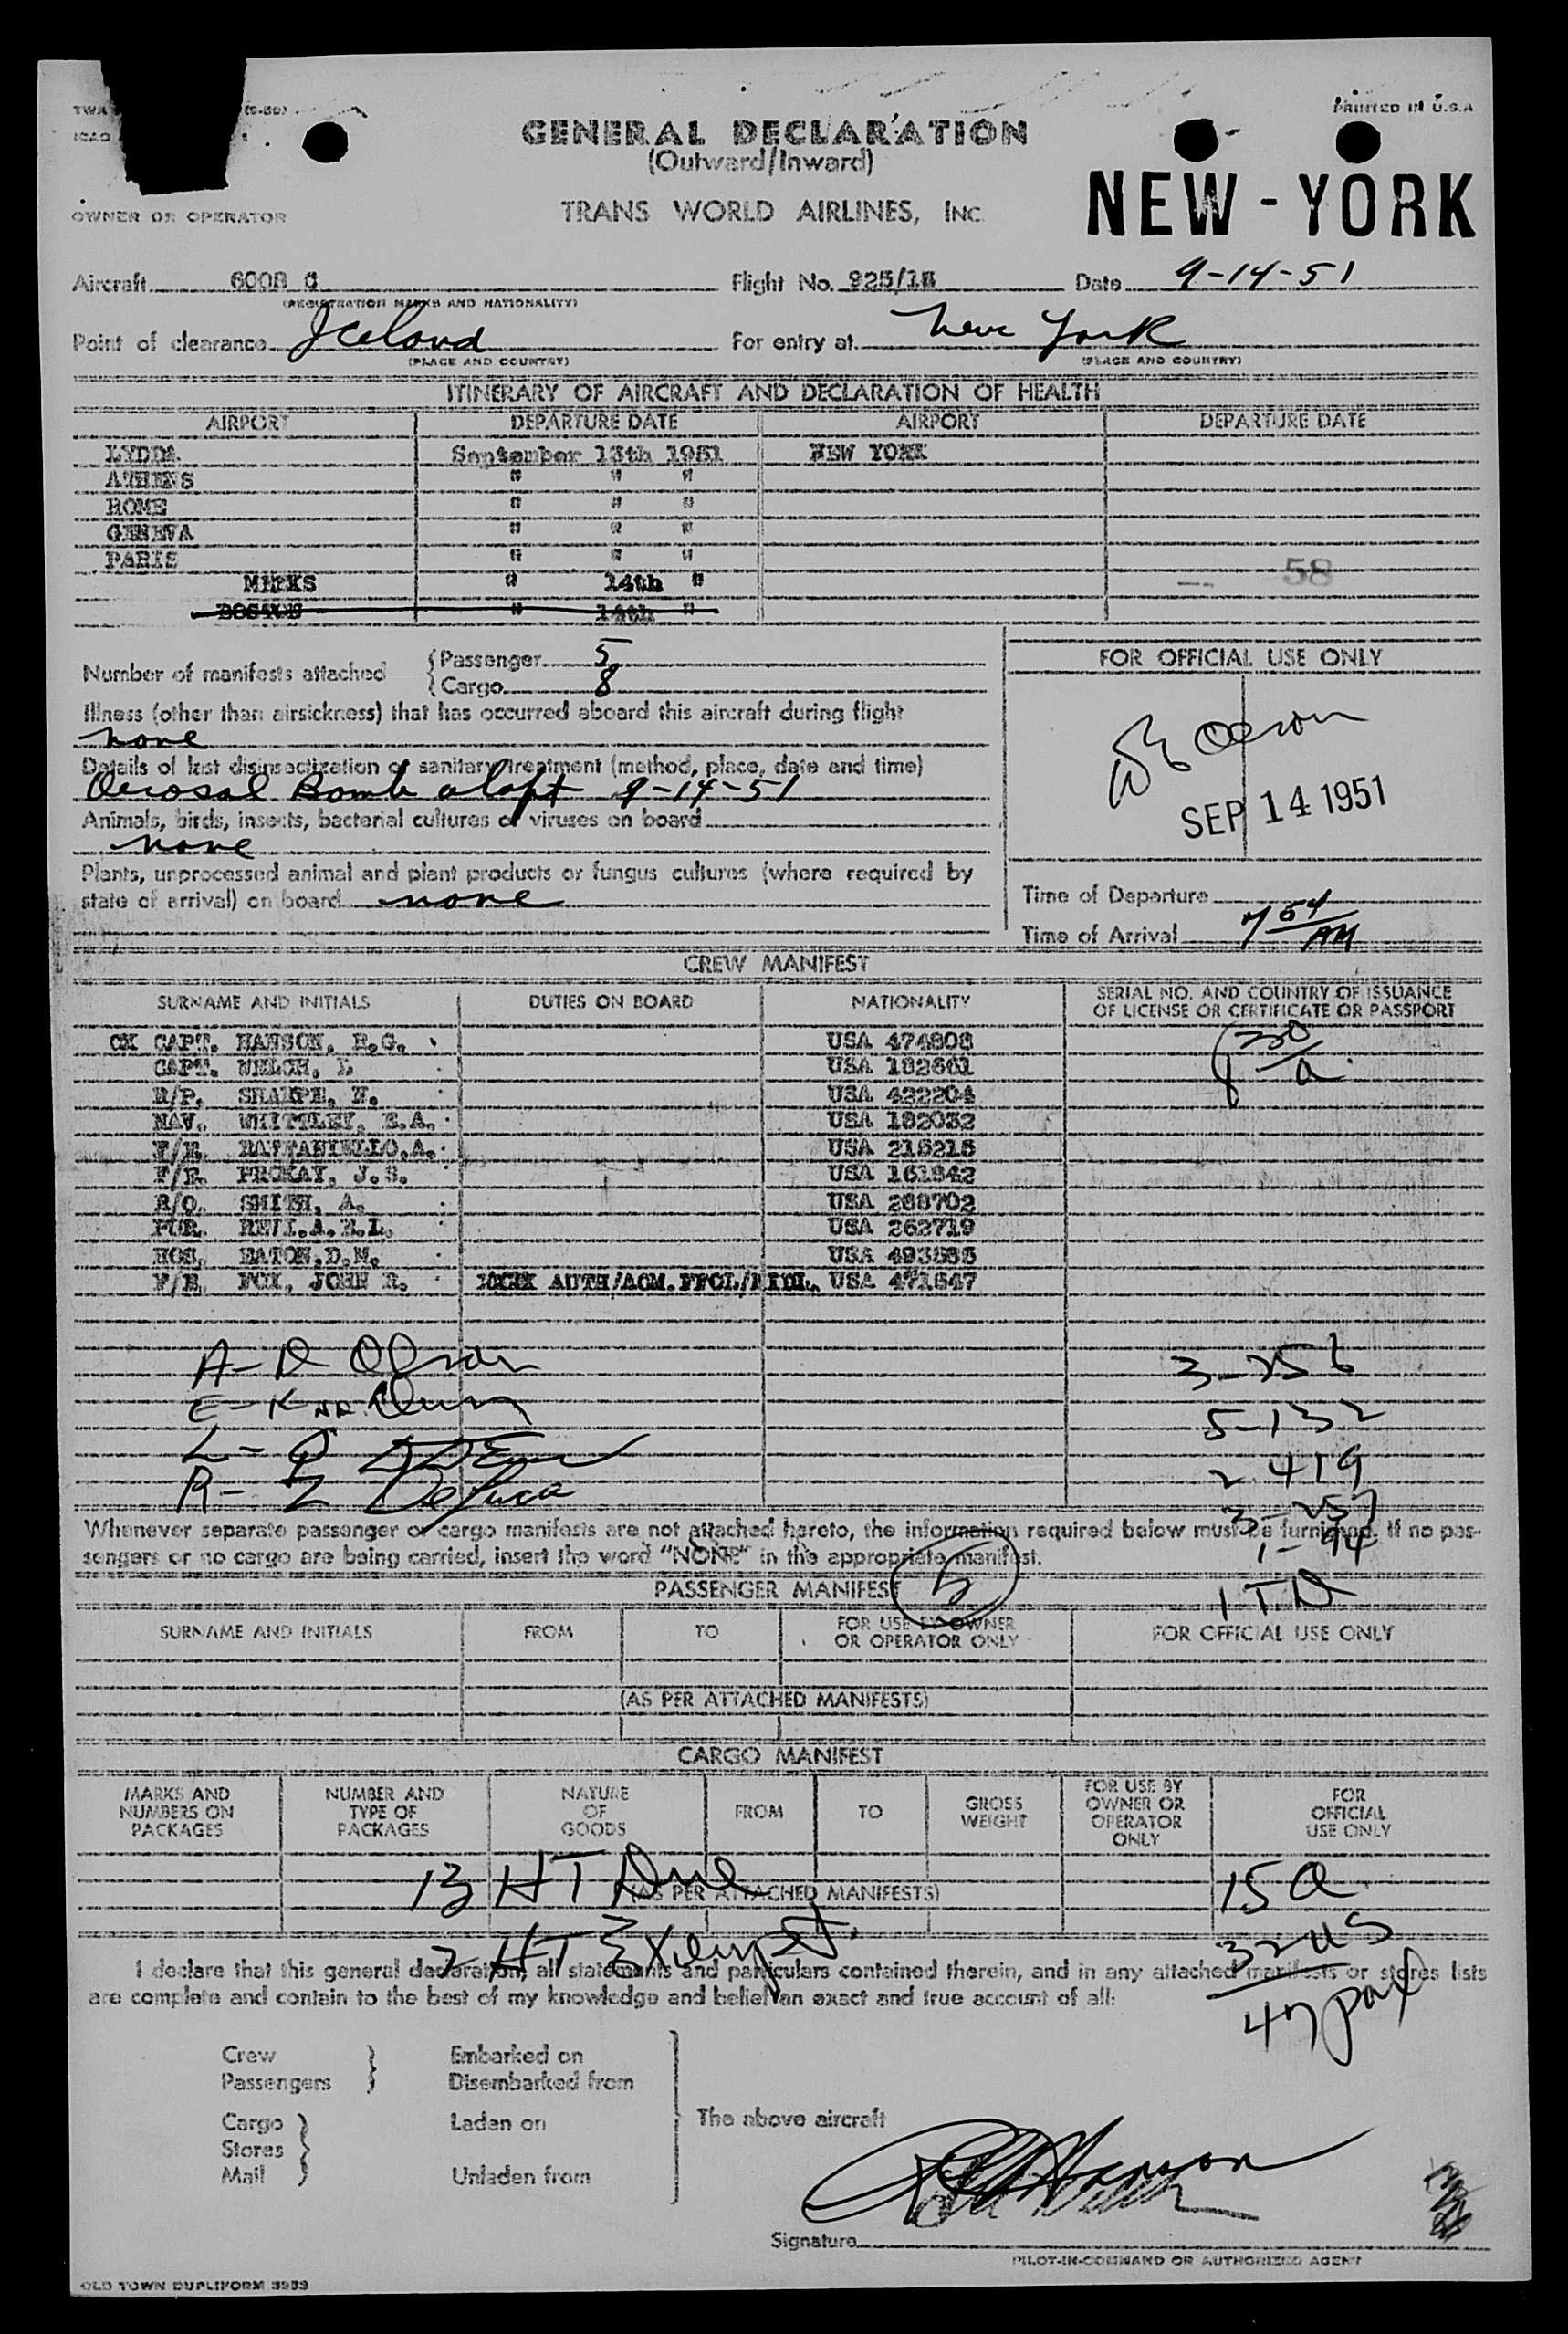 TWA
ICAO
PRINTED IN U.S.A
GENERAL DECLARATION
(Outward/Inward)
OWNER OR OPERATOR
TRANS WORLD AIRLINES, INC
NEW-YORK
Aircraft 6008 C
(REGISTRATION MARKS AND NATIONALITY)
Flight No.
Date 9-14-51
Point of clearance Iceland
(PLACE AND COUNTRY)
For entry at New York
(PLACE AND COUNTRY)
ITINERARY OF AIRCRAFT AND DECLARATION OF HEALTH
AIRPORT DEPARTURE DATE AIRPORT DEPARTURE DATE
LYDDA September 13th 1951 NEW YORK
ATHENS " " "
ROME " " "
GENEVA " " "
PARIS " " "
58
MEEKS " 14th "
BOSTON " 14th "
Number of manifests attached { Passenger 5
Cargo 8
FOR OFFICIAL USE ONLY
Illness (other than airsickness) that has occurred aboard this aircraft during flight
none
Details of last disinsectization or sanitary treatment (method, place, date and time)
Aerosol Bomb 9-14-51
SEP 14 1951
Animals, birds, insects, bacterial cultures or viruses on board
none
Plants, unprocessed animal and plant products or fungus cultures (where required by
state of arrival) on board none
Time of Departure
Time of Arrival 7 54 AM
CREW MANIFEST
SURNAME AND INITIALS DUTIES ON BOARD NATIONALITY SERIAL NO. AND COUNTRY OF ISSUANCE
OF LICENSE OR CERTIFICATE OR PASSPORT
CK CAPT. HANSON, R.G. USA 474808
CAPT. WELCH, L USA 182661
R/P. SHARPE, USA 422204
NAV. WHITTLEY, E.A. USA 182032
F/E. RAFFANIELLO, A. USA 215215
F/E. PROKAY, J.S. USA 161942
R/O. SMITH, A. USA 268702
PUR. USA 262719
HOS. EATON, D.M. USA
F/E. FOX, JOHN R. AUTH/ACM. USA 471547
A- D Olson
3-256
5-132
2 419
R- Z DeLuca
3-257
1-94
1 T.D
Whenever separate passenger or cargo manifests are not attached hereto, the information required below must be furnished. If no pas-
sengers or no cargo are being carried, insert the word "NONE" in the appropriate manifest.
PASSENGER MANIFEST 5
SURNAME AND INITIALS FROM TO FOR USE BY OWNER
OR OPERATOR ONLY FOR OFFICIAL USE ONLY
(AS PER ATTACHED MANIFESTS)
CARGO MANIFEST
MARKS AND
NUMBERS ON
PACKAGES NUMBER AND
TYPE OF
PACKAGES NATURE
OF
GOODS FROM TO GROSS
WEIGHT FOR USE BY
OWNER OR
OPERATOR
ONLY FOR
OFFICIAL
USE ONLY
13 HT Due 15 A
(AS PER ATTACHED MANIFESTS)
2 HT Exempt 32 US
47 pax
I declare that this general declaration, all statements and particulars contained therein, and in any attached manifests or stores lists
are complete and contain to the best of my knowledge and belief an exact and true account of all:
Crew Embarked on
Passengers Disembarked from
Cargo Laden on The above aircraft
Stores
Mail Unladen from
Signature
PILOT-IN-COMMAND OR AUTHORIZED AGENT
OLD TOWN DUPLIFORM 3953